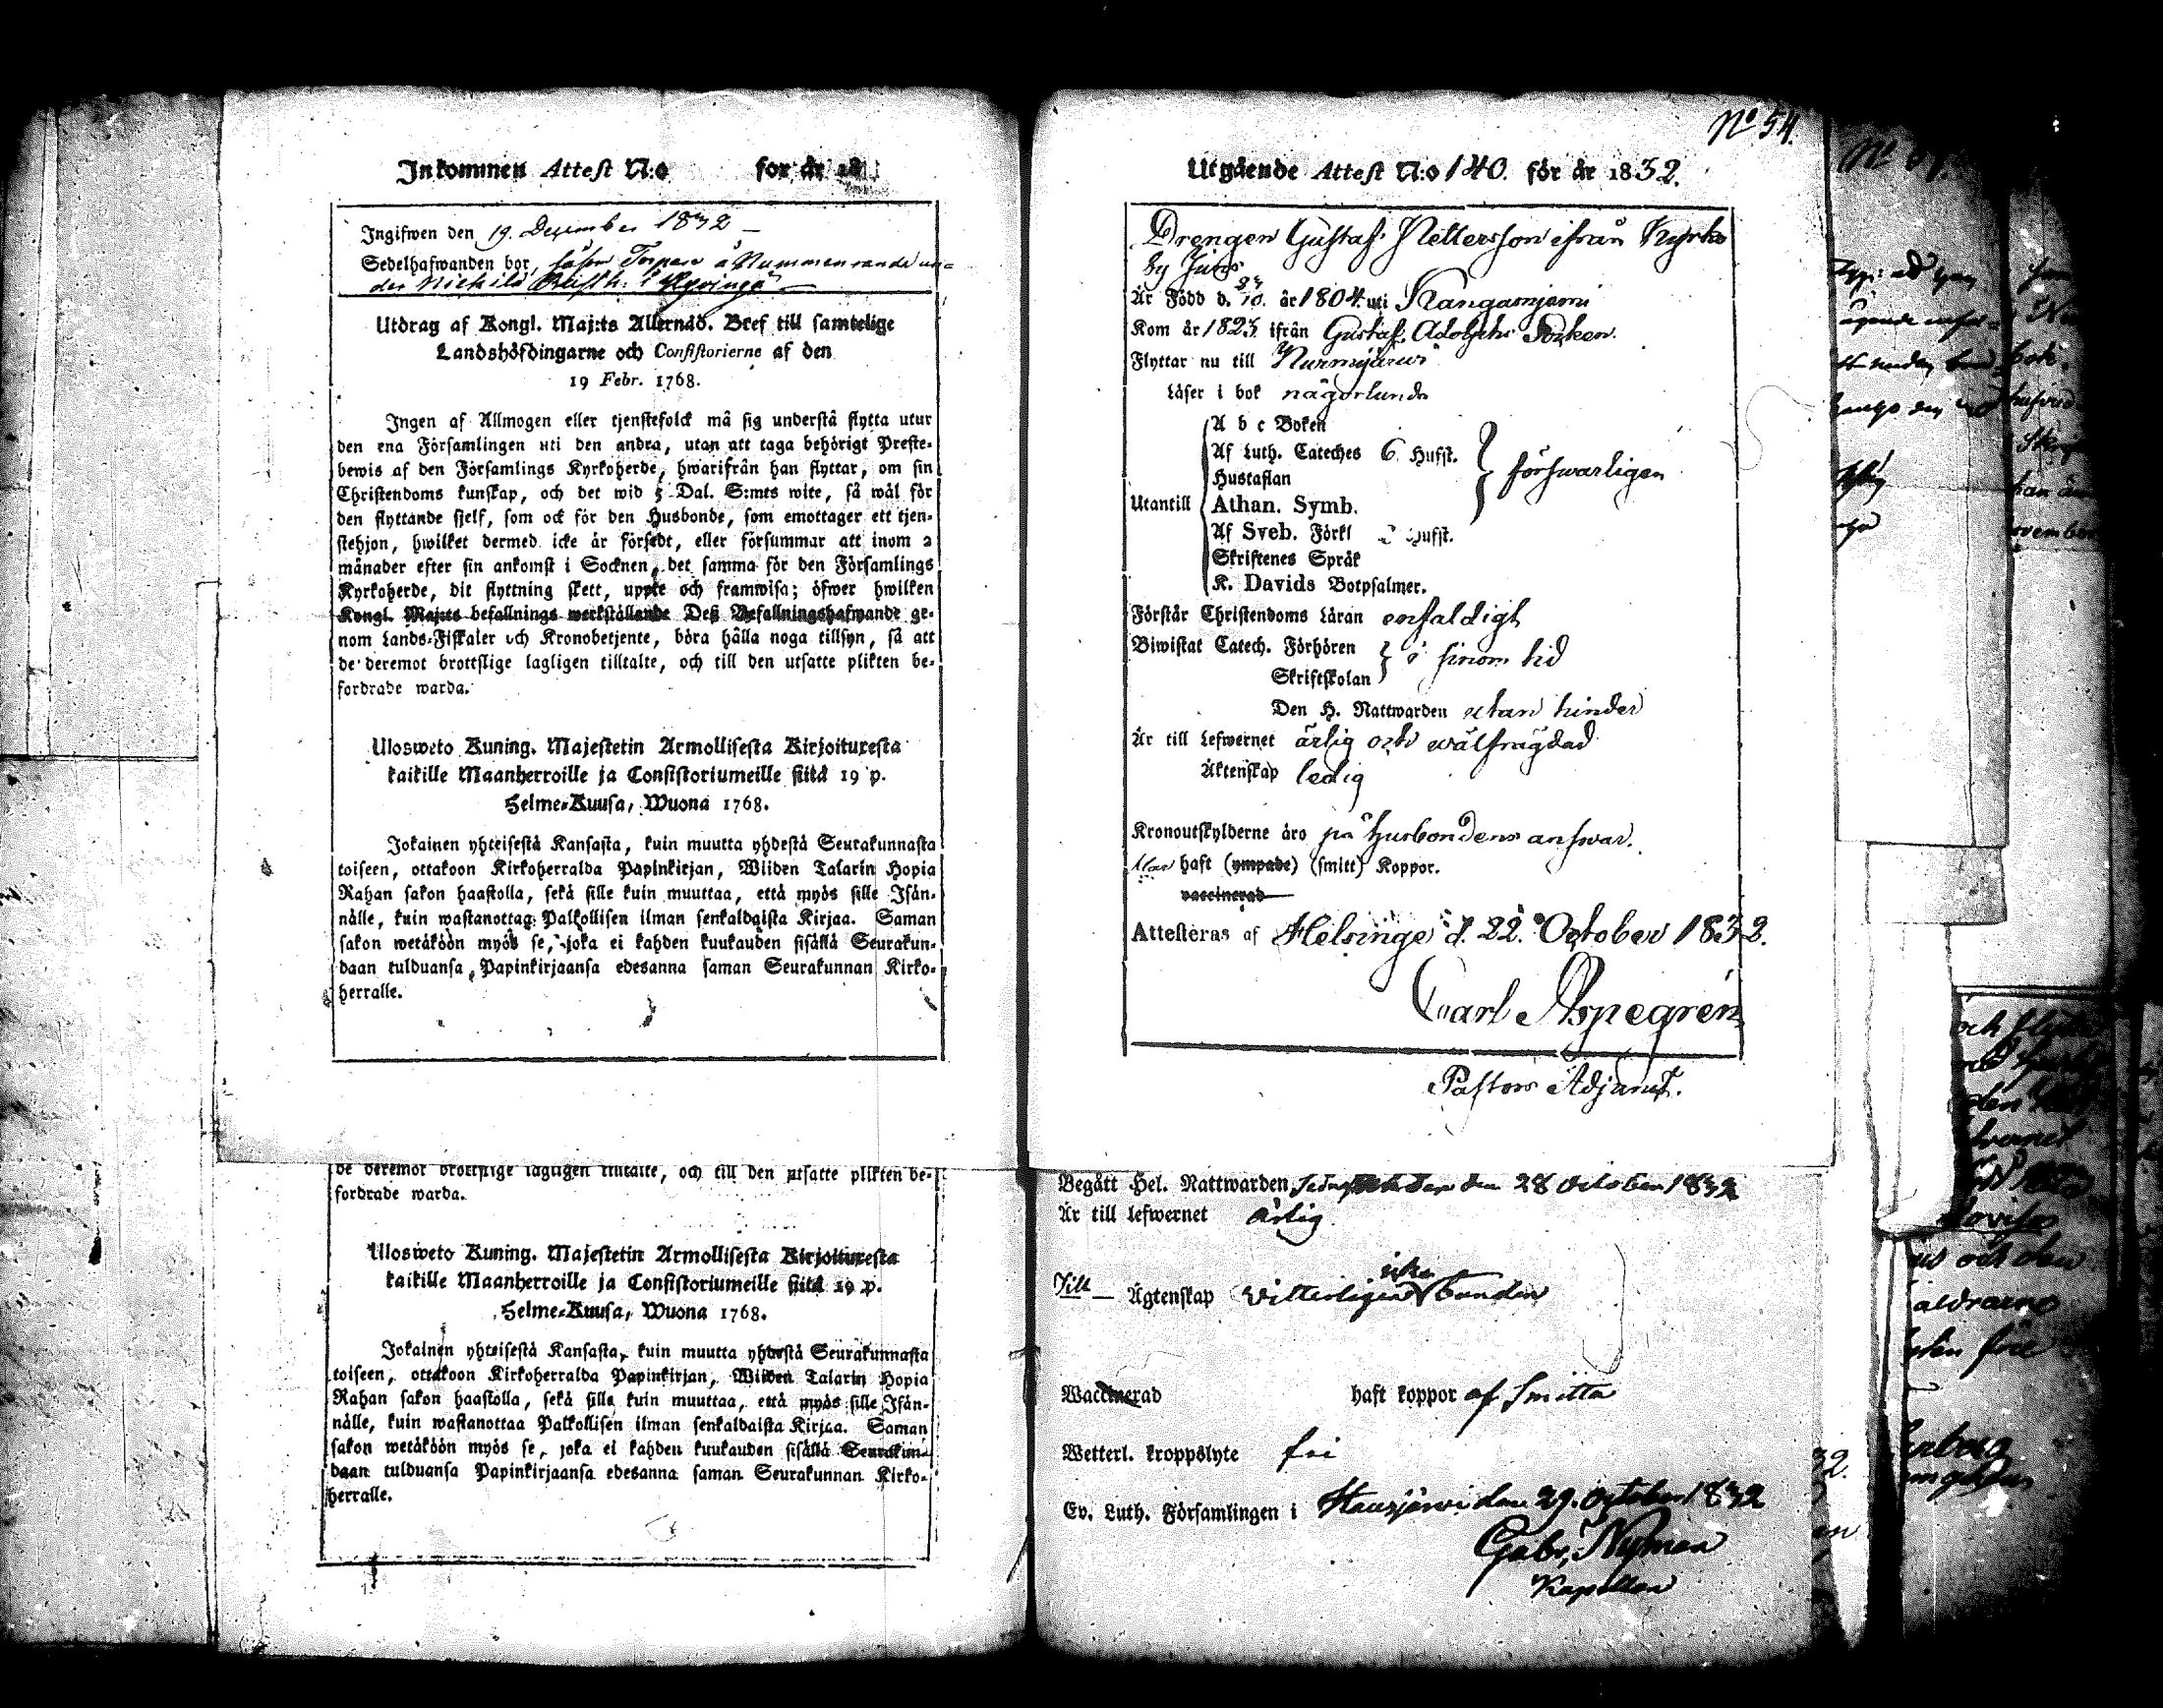 Inkommen Attest N:o för år 18
Ingifwen den 19. December 1832 –
Sedelhafwanden bor, såsom Torpare å Nummenrande un=
der Nickilä i Hyvinge
Utdrag af Kongl. Maj:ts Allernåd. Bref till samtelige
Landshöfdingarne och Consistorierne af den
19 Febr. 1768.
Ingen af Allmogen eller tjenstefolck må sig understå flytta utur
den ena Församlingen uti den andra, utan att taga behörigt Preste-
bewis af den Församlings Kyrkoherde, hwarifrån han flyttar, om sin
Christendoms kunskap, och det wid 5 Dal. S:mts wite, så wäl för
den flyttande sjelf, som ock för den Husbonde, som emottager ett tjen-
stehjon, hwilket dermed icke är försedt, eller försummar att inom 2
månader efter sin ankomst i Socknen, det samma för den Församlings
Kyrkoherde, dit flyttning skett, uppte och framwisa; öfwer hwilken
Kongl. Maj:ts befallnings werkställande Deß Befallningshafwande ge-
nom Lands-Fiskaler och Kronobetjente, böra hålla noga tillsyn, så att
de deremot brottslige lagligen tilltalte, och till den utsatte plikten be-
fordrade warda.
Ulosweto Kuning. Majestetin Armollisesta Kirjoituxesta
kaikille Maanherroille ja Consistoriumeille siitä 19 p.
Helme-Kuusa, Wuona 1768.
Jokainen yhteisestä Kansasta, kuin muutta yhdestä Seurakunnasta
toiseen, ottakoon Kirkoherralda Papinkirjan, Wiiden Talarin Hopia
Rahan sakon haastolla, sekä sille kuin muuttaa, että myös sille Isän-
nälle, kuin wastanottaa Palkollisen ilman senkaldaista Kirjaa. Saman
sakon wetäköön myös se, joka ei kahden kuukauden sisällä Seurakun-
daan tulduansa, Papinkirjaansa edesanna saman Seurakunnan Kirko-
herralle.
de deremot brottslige lagligen tilltalte, och till den utsatte plikten be-
fordrade warda.
Ulosweto Kuning. Majestetin Armollisesta Kirjoituxesta
kaikille Maanherroille ja Consistoriumeille siitä 19 p.
Helme-Kuusa, Wuona 1768.
Jokainen yhteisestä Kansasta, kuin muutta yhdestä Seurakunnasta
toiseen, ottakoon Kirkoherralda Papinkirjan, Wiiden Talarin Hopia
Rahan sakon haastolla, sekä sille kuin muuttaa, että myös sille Isän-
nälle, kuin wastanottaa Palkollisen ilman senkaldaista Kirjaa. Saman
sakon wetäköön myös se, joka ei kahden kuukauden sisällä Seurakun-
daan tulduansa Papinkirjaansa edesanna saman Seurakunnan Kirko-
herralle.
No 54.
Utgående Attest N:o 140. för år 1832.
Drengen Gustaf Pettersson ifrån Kyrko
by
Är Född d. år 1804. uti Kangasniemi
Kom år 1823 ifrån Gustaf Adolphs Socken.
Flyttar nu till Nurmijärwi
Läser i bok någorlunda
A b c Boken
Af Luth. Cateches 6 Hufst.
Hustaflan
försvarligen
Utantill Athan. Symb.
Af Sveb. Förkl Hufst.
Skriftenes Språk
K. Davids Botpsalmer.
Förstår Christendoms Läran enfaldigt
Biwistat Catech. Förhören
Skriftskolan
i sinom tid
Den H. Nattwarden utan hinder
Är till Lefwernet ärlig och wälfrägdad
Äktenskap ledig
Kronoutskylderne äro på husbondens answar.
Har haft (ympade) (smitt) Koppor.
vaccinerad
Attesteras af Helsinge d. 22. October 1832.
Carl Aspegrén
Pastors Adjunct.
Begått Hel. Nattwarden den 28 October 1832
Är till lefwernet ärlig
Till – Ägtenskap witterligen icke bunden
Waccinerad haft koppor af Smitta
Wetterl. kroppslyte fri
Ev. Luth. Församlingen i Hausjärvi den 29. October 1832
Gabr. Nyman
Kapellan